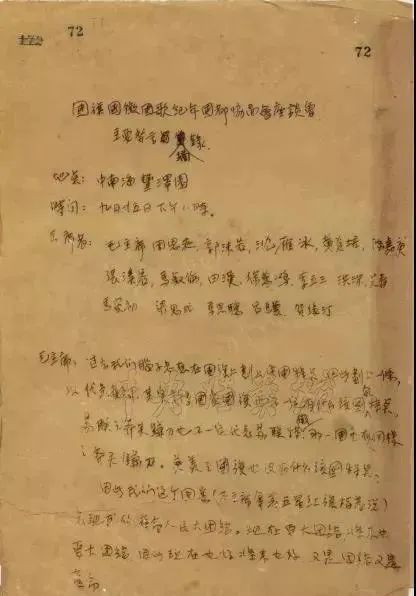 72
72
国旗国徽国歌纪年国都协商座谈会
主要发言摘录
地点:中南海丰泽园
时间:九月廿五日下午八时
出席者:毛主席 周恩来 郭沫若 沈雁冰 黄炎培 陈嘉庚
张奚若 马叙伦 田汉 徐悲鸿 李立三 洪深 艾青
马寅初 梁思成 马思聪 吕骥 贺绿汀
毛主席:过去我们脑子老想在国旗上划上中国特点,因此划上一条,
以代表黄河,其实许多国家国旗也不一定有什么该国特点,
苏联之斧头镰刀也不一定代表苏联特征,那一国也有同样
之斧头镰刀。英美之国旗也没有什么该国特点。
因此我们这个图案(毛主席拿着五星红旗指着说)
表现我们革命人民大团结。现在要大团结,将来也
要大团结,因此现在也好将来也好,又是团结又是
革命